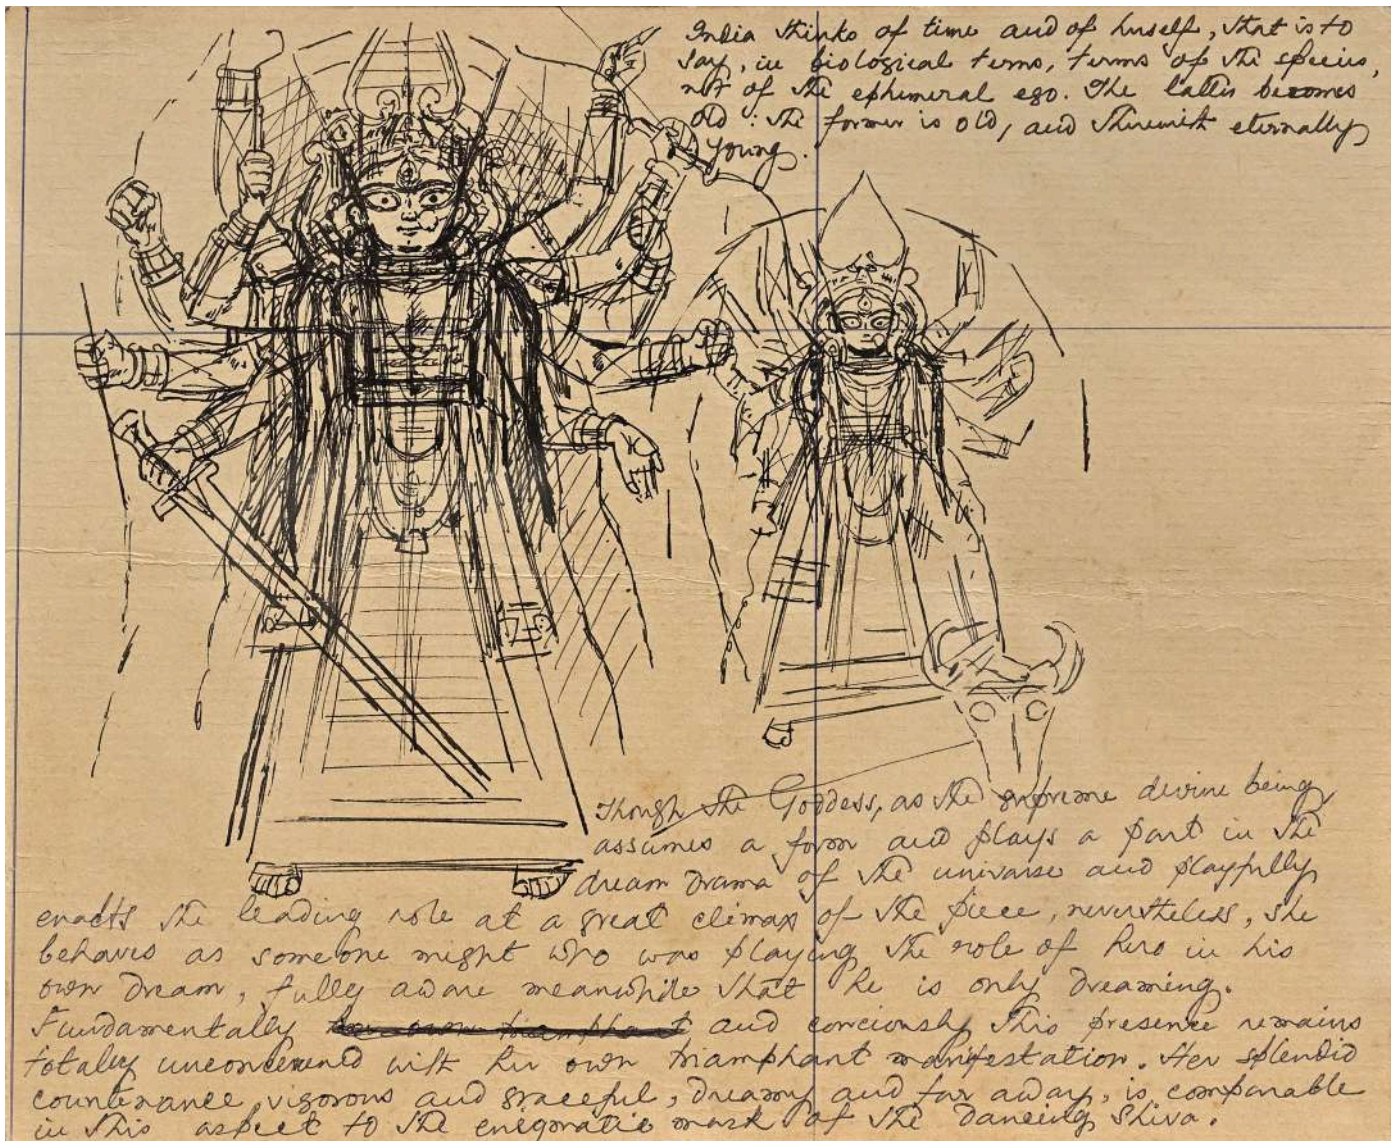 India thinks of time and of herself, that is to
say, in biological terms, terms of the species,
not of the ephemeral ego. The latter becomes
old : the former is old, and therewith eternally
young.
Though the Goddess, as the supreme divine being
assumes a form and plays a part in the
dream drama of the universe and playfully
enacts the leading role at a great climax of the piece, nevertheless, she
behaves as someone might who was playing the role of hero in his
own dream, fully aware meanwhile that he is only dreaming.
Fundamentally and conciously this presence remains
totally unconcerned with her own triamphant manifestation. Her splendid
countenance, vigorous and graceful, dreamy and far away, is comparable
in this aspect to the enigmatic mask of the dancing Shiva.